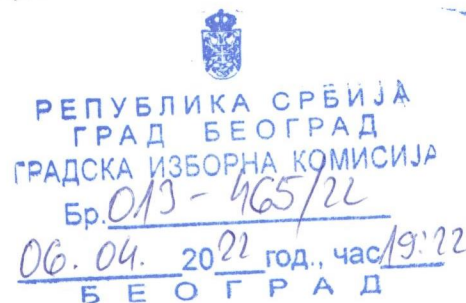 РЕПУБЛИКА СРБИЈА
ГРАД БЕОГРАД
ГРАДСКА ИЗБОРНА КОМИСИЈА
Бр. 013-465/22
06. 04. 2022 год., час 19:22
БЕОГРАД